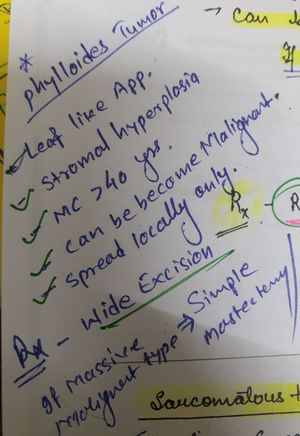 → Can
* Phylloides Tumor
Leaf like App.
Stromal hyperplasia
MC > 40 yrs.
Can be become Malignant.
Spread locally only.
Rx - Wide Excision
If Massive
Malignant type → Simple
Mastectomy
Rx -
Sarcomatous